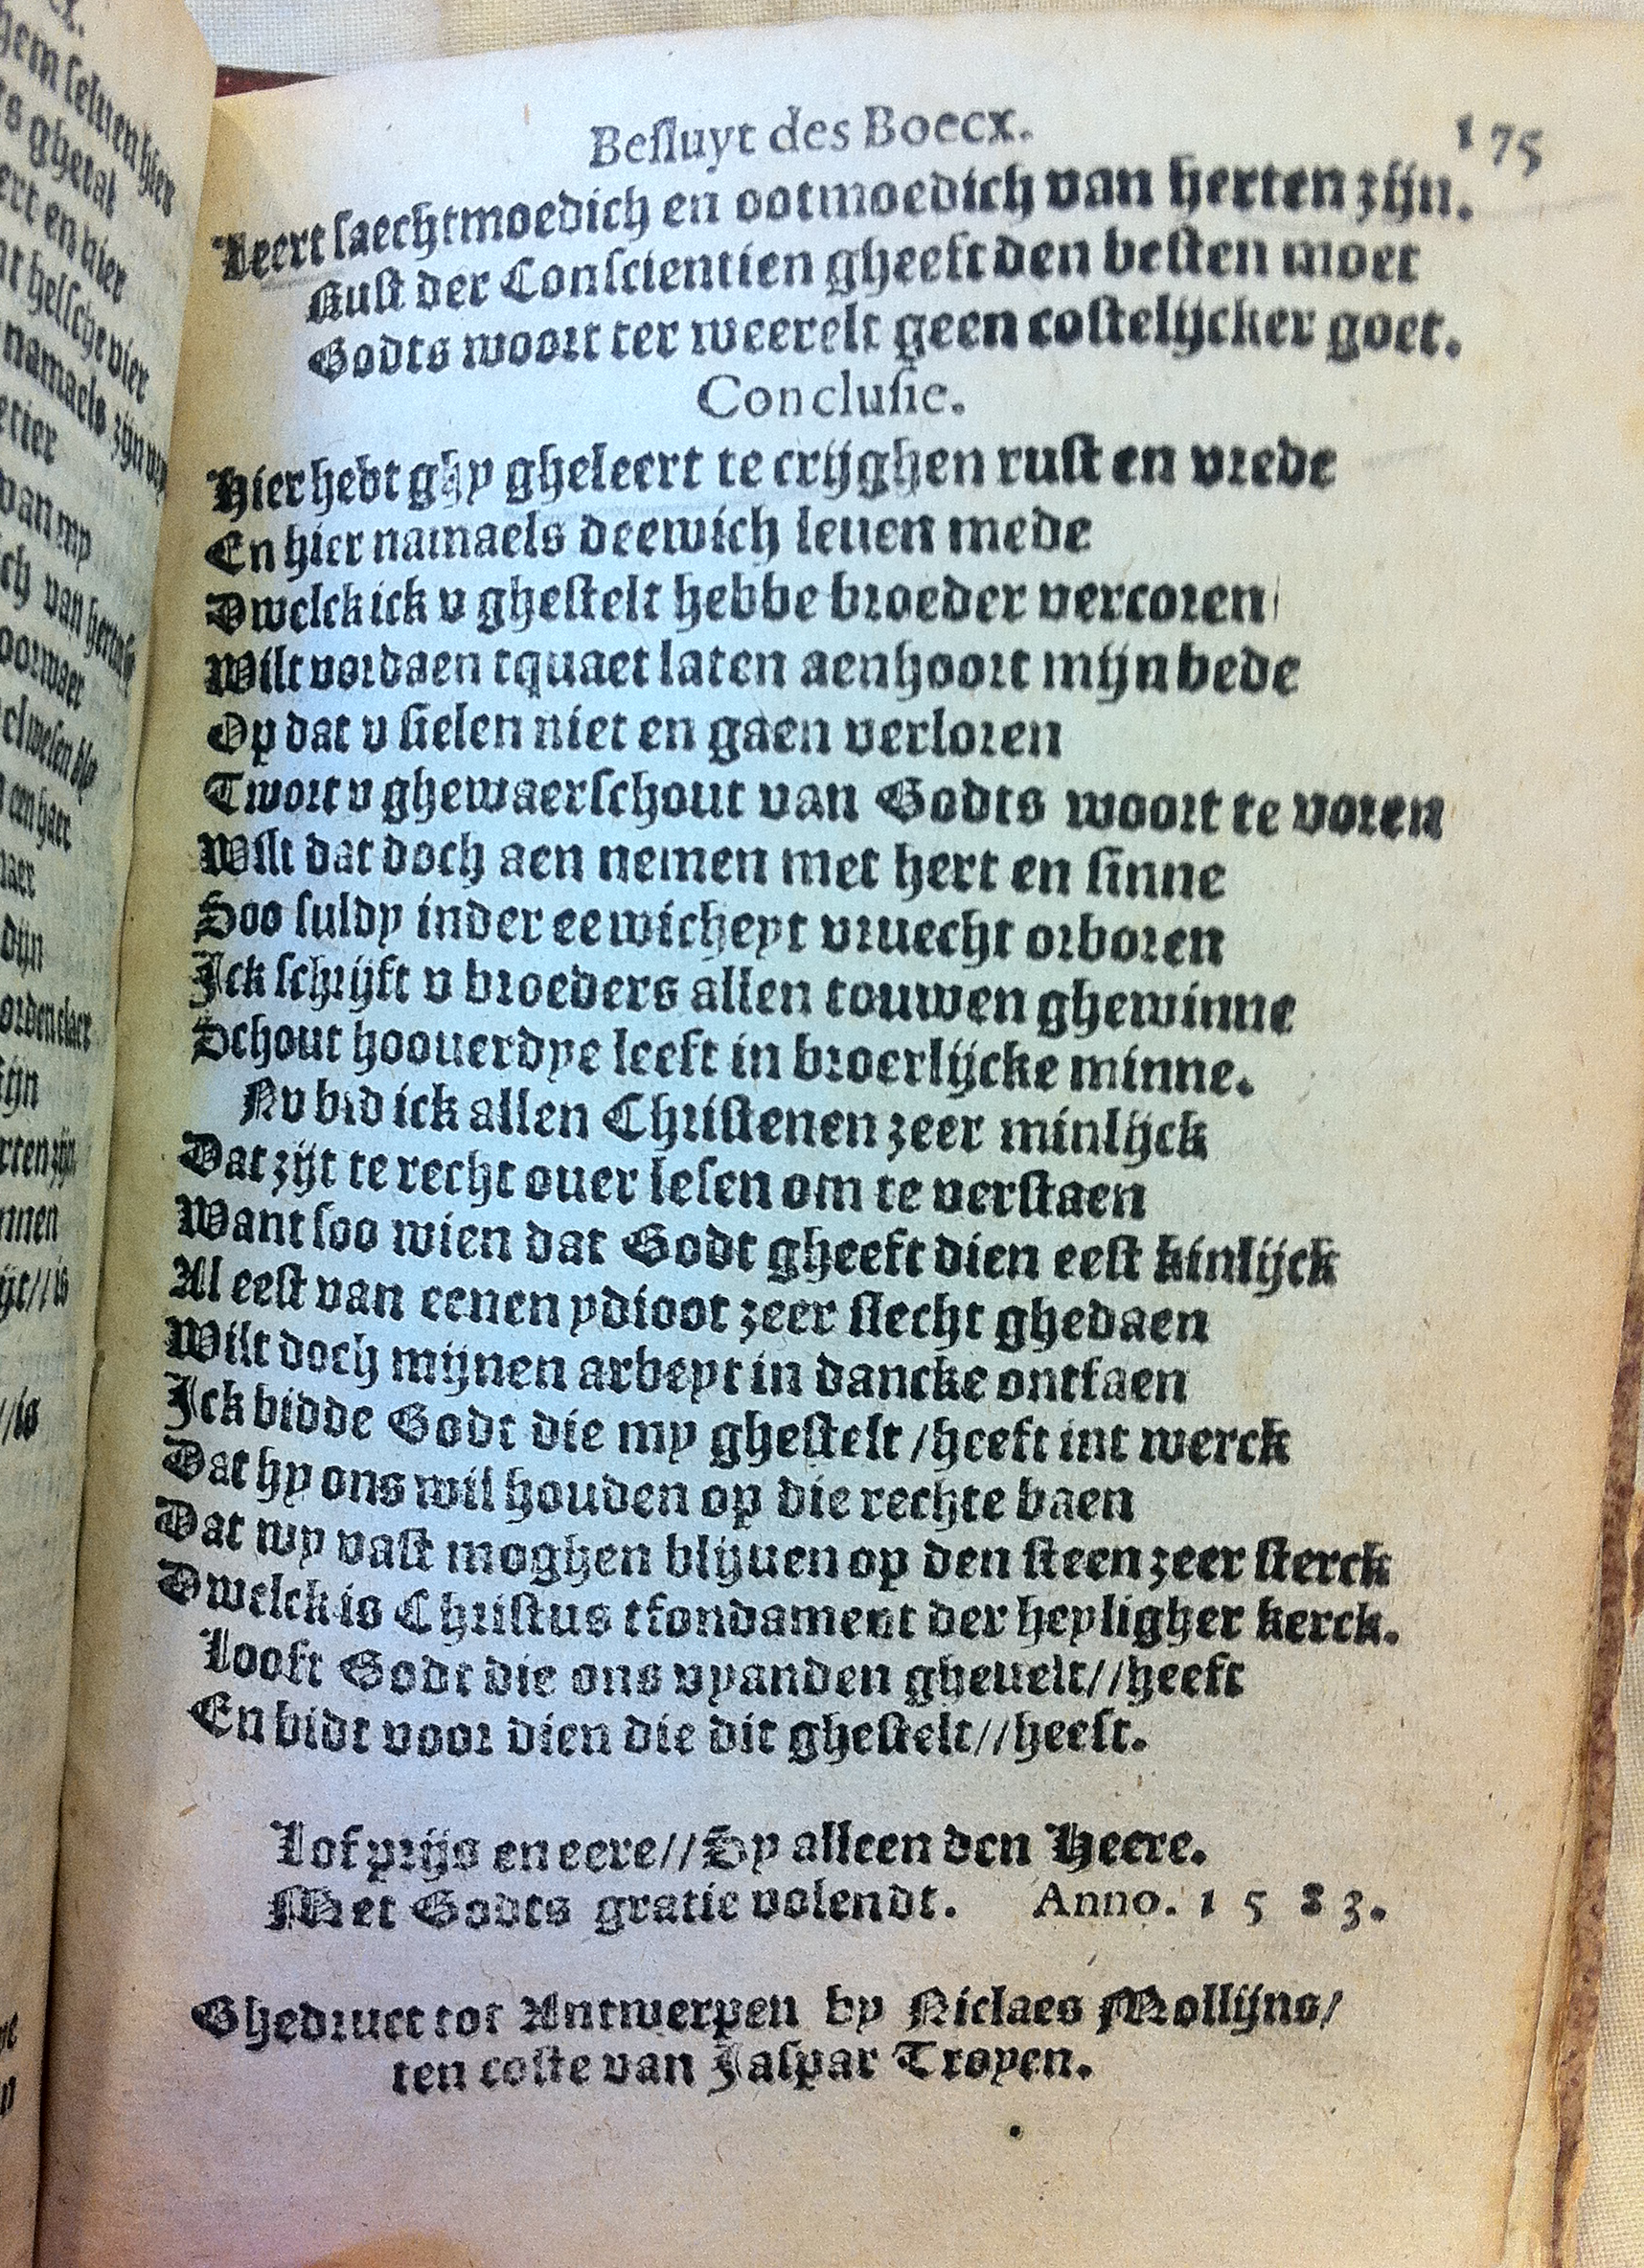 Besluyt des Boecx. 175
Leert saechtmoedich en ootmoedich van herten zijn.
Rust der Conscientien gheeft den besten moet
Godts woort ter weerelt geen costelijcker goet.
Conclusie.
Hier hebt ghy gheleert te crijghen rust en vrede
En hier namaels deewich leuen mede
Dwelck ick v ghestelt hebbe broeder vercoren/
Wilt vordaen tquaet laten aenhoort mijn bede
Op dat v sielen niet en gaen verloren
Twort v ghewaerschout van Godts woort te voren
Wilt dat doch aen nemen met hert en sinne
Soo suldy inder eewicheyt vruecht orboren
Ick schrijft v broeders allen touwen ghewinne
Schout hoouerdye leeft in broerlijcke minne.
Nv bid ick allen Christenen zeer minlijck
Dat zijt te recht ouer lesen om te verstaen
Want soo wien dat Godt gheeft dien eest kinlijck
Al eest van eenen ydioot zeer slecht ghedaen
Wilt doch mijnen arbeyt in dancke ontfaen
Ick bidde Godt die my ghestelt /heeft int werck
Dat hy ons wil houden op die rechte baen
Dat wy vast moghen blijuen op den steen zeer sterck
Dwelck is Christus tfondament der heyligher kerck.
Looft Godt die ons vyanden gheuelt//heeft
En bidt voor dien die dit ghestelt//heeft.
Lof prijs en eere//Sy alleen den Heere.
Met Godts gratie volendt. Anno. 1583.
Ghedruct tot Antwerpen by Niclaes Mollijns/
ten coste van Jaspar Troyen.